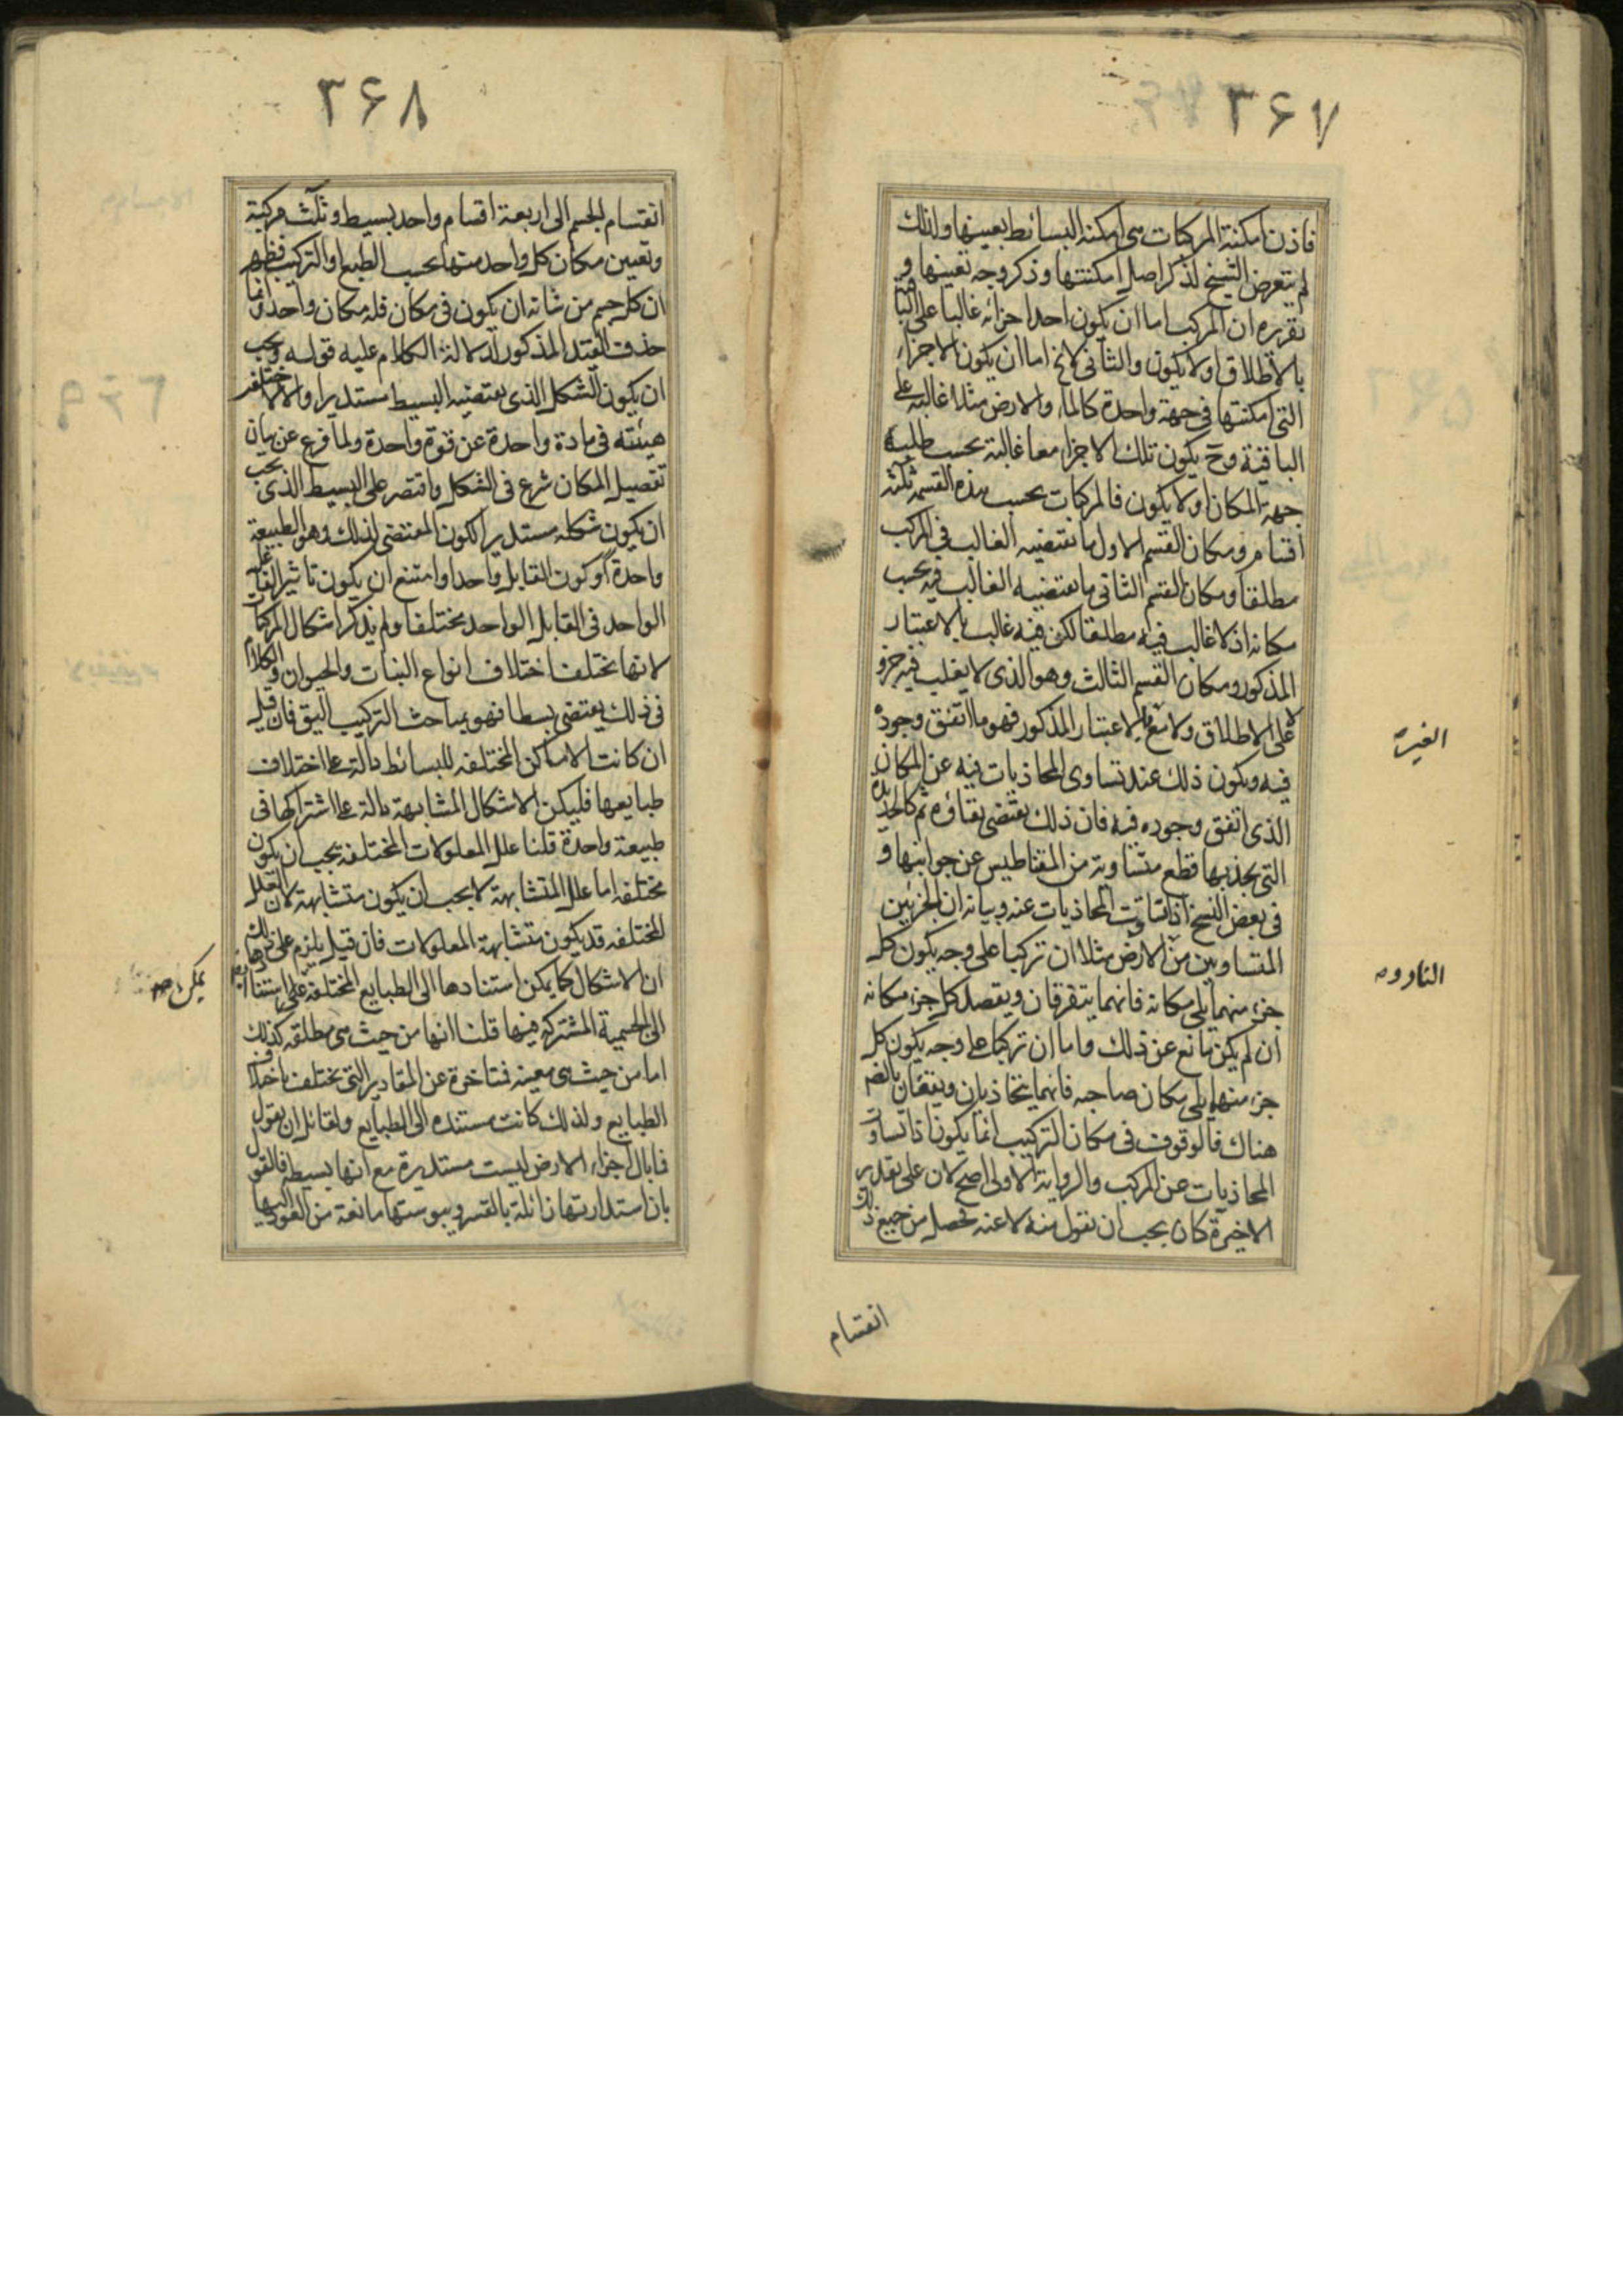 ٣۶٧
فاذن امكنة المركبات هى امكنة البسائط بعينها ولذلك
لم يتعرض الشيخ لذكر اصل امكنتها وذكر وجه تعينها و
تقريره ان المركب اما ان يكون احد اجزائه غالبا على
بالاطلاق او لا يكون والثانى لا يخ اما ان يكون الاجزاء
التى امكنتها فى جهة واحدة كالماء والارض مثلا غالبة على
الباقية وح يكون تلك الاجزاء معا غالبة بحسب طلب
جهة المكان او لا يكون فالمركبات بحسب هذه القسمة ثلثة
اقسام ومكان القسم الاول ما تقتضيه الغالب فى المركب
مطلقا ومكان القسم الثانى ما يقتضيه الغالب فيه بحسب
مكانه اذ لا غالب فيه مطلقا لكن فيه غالب بالاعتبار
المذكور ومكان القسم الثالث وهو الذى لا يغلب فيه جزء
لا على الاطلاق ولا مع بالاعتبار المذكور فهو ما اتفق وجوده
فيه ويكون ذلك عند تساوى المحاذيات فيه عن المكان
الذى اتفق وجوده فيه فان ذلك يقتضى بقاؤه ثم كالحديدة
التى يجذبها قطع متساوية من المقناطيس عن جوانبها و
فى بعض النسخ اذا تساوت المحاذيات عنه وبيانه ان الجزئين
المتساويين من الارض مثلا ان تركبا على وجه يكون كل
جزء منهما يلى مكانه فانهما يتفرقان ويقصد كل جزء مكانه
ان لم يكن مانع عن ذلك واما ان تركبا على وجه يكون كل
جزء منهما يلى مكان صاحبه فانهما يتحاذيان ويقفان بالضر
هناك فالوقوف فى مكان التركيب انما يكون اذا تساوت
المحاذيات عن المركب والرواية الاولى اصح لان على تقدير
الاخيرة كان يجب ان نقول منه لا عنه فحصل من جميع ذلك
انقسام
٣۶٨
انقسام الجسم الى اربعة اقسام واحد بسيط وثلث مركبة
وتعيين مكان كل واحد منها بحسب الطبع او التركيب فظهر
ان كل جسم من شانه ان يكون فى مكان فله مكان واحد وانما
حذف القيد المذكور لدلالة الكلام عليه قوله ويجب
ان يكون الشكل الذى يقتضيه البسيط مستديرا والا لاختلفت
هيئته فى مادة واحدة عن قوة واحدة ولما فرغ عن بيان
تفصيل المكان شرع فى الشكل واقتصر على البسيط الذى يجب
ان يكون شكله مستديرا لكون المقتضى لذلك وهو الطبيعة
واحدة وكون القابل واحدا وامتنع ان يكون تاثير الفاعل
الواحد فى القابل الواحد مختلفا ولم يذكر اشكال المركبات
لانها تختلف اختلاف انواع النبات والحيوان والكلام
فى ذلك يقتضى بسطا فهو بمباحث التركيب اليق فان قيل
ان كانت الاماكن المختلفه للبسائط دالة على اختلاف
طبايعها فليكن الاشكال المتشابهة دالة على اشتراكها فى
طبيعة واحدة قلنا علل المعلولات المختلفه يجب ان يكون
مختلفه اما علل المتشابهة لا يجب ان يكون متشابهة لان العلل
المختلفه قد يكون متشابهة المعلولات فان قيل يلزم على ذلك
ان الاشكال كما يمكن استنادها الى الطبايع المختلفة
الى الجسمية المشتركه فيها قلنا انها من حيث هى مطلقه كذلك
اما من حيث هى معينه فمتاخرة عن المقادير التى يختلف باختلاف
الطبايع ولذلك كانت مستنده الى الطبايع ولقائل ان يقول
فما بال اجزاء الارض ليست مستديرة مع انها بسيطه فالقول
بان استدارتها زائلة بالقسر ويبوستها مانعة من العود اليها